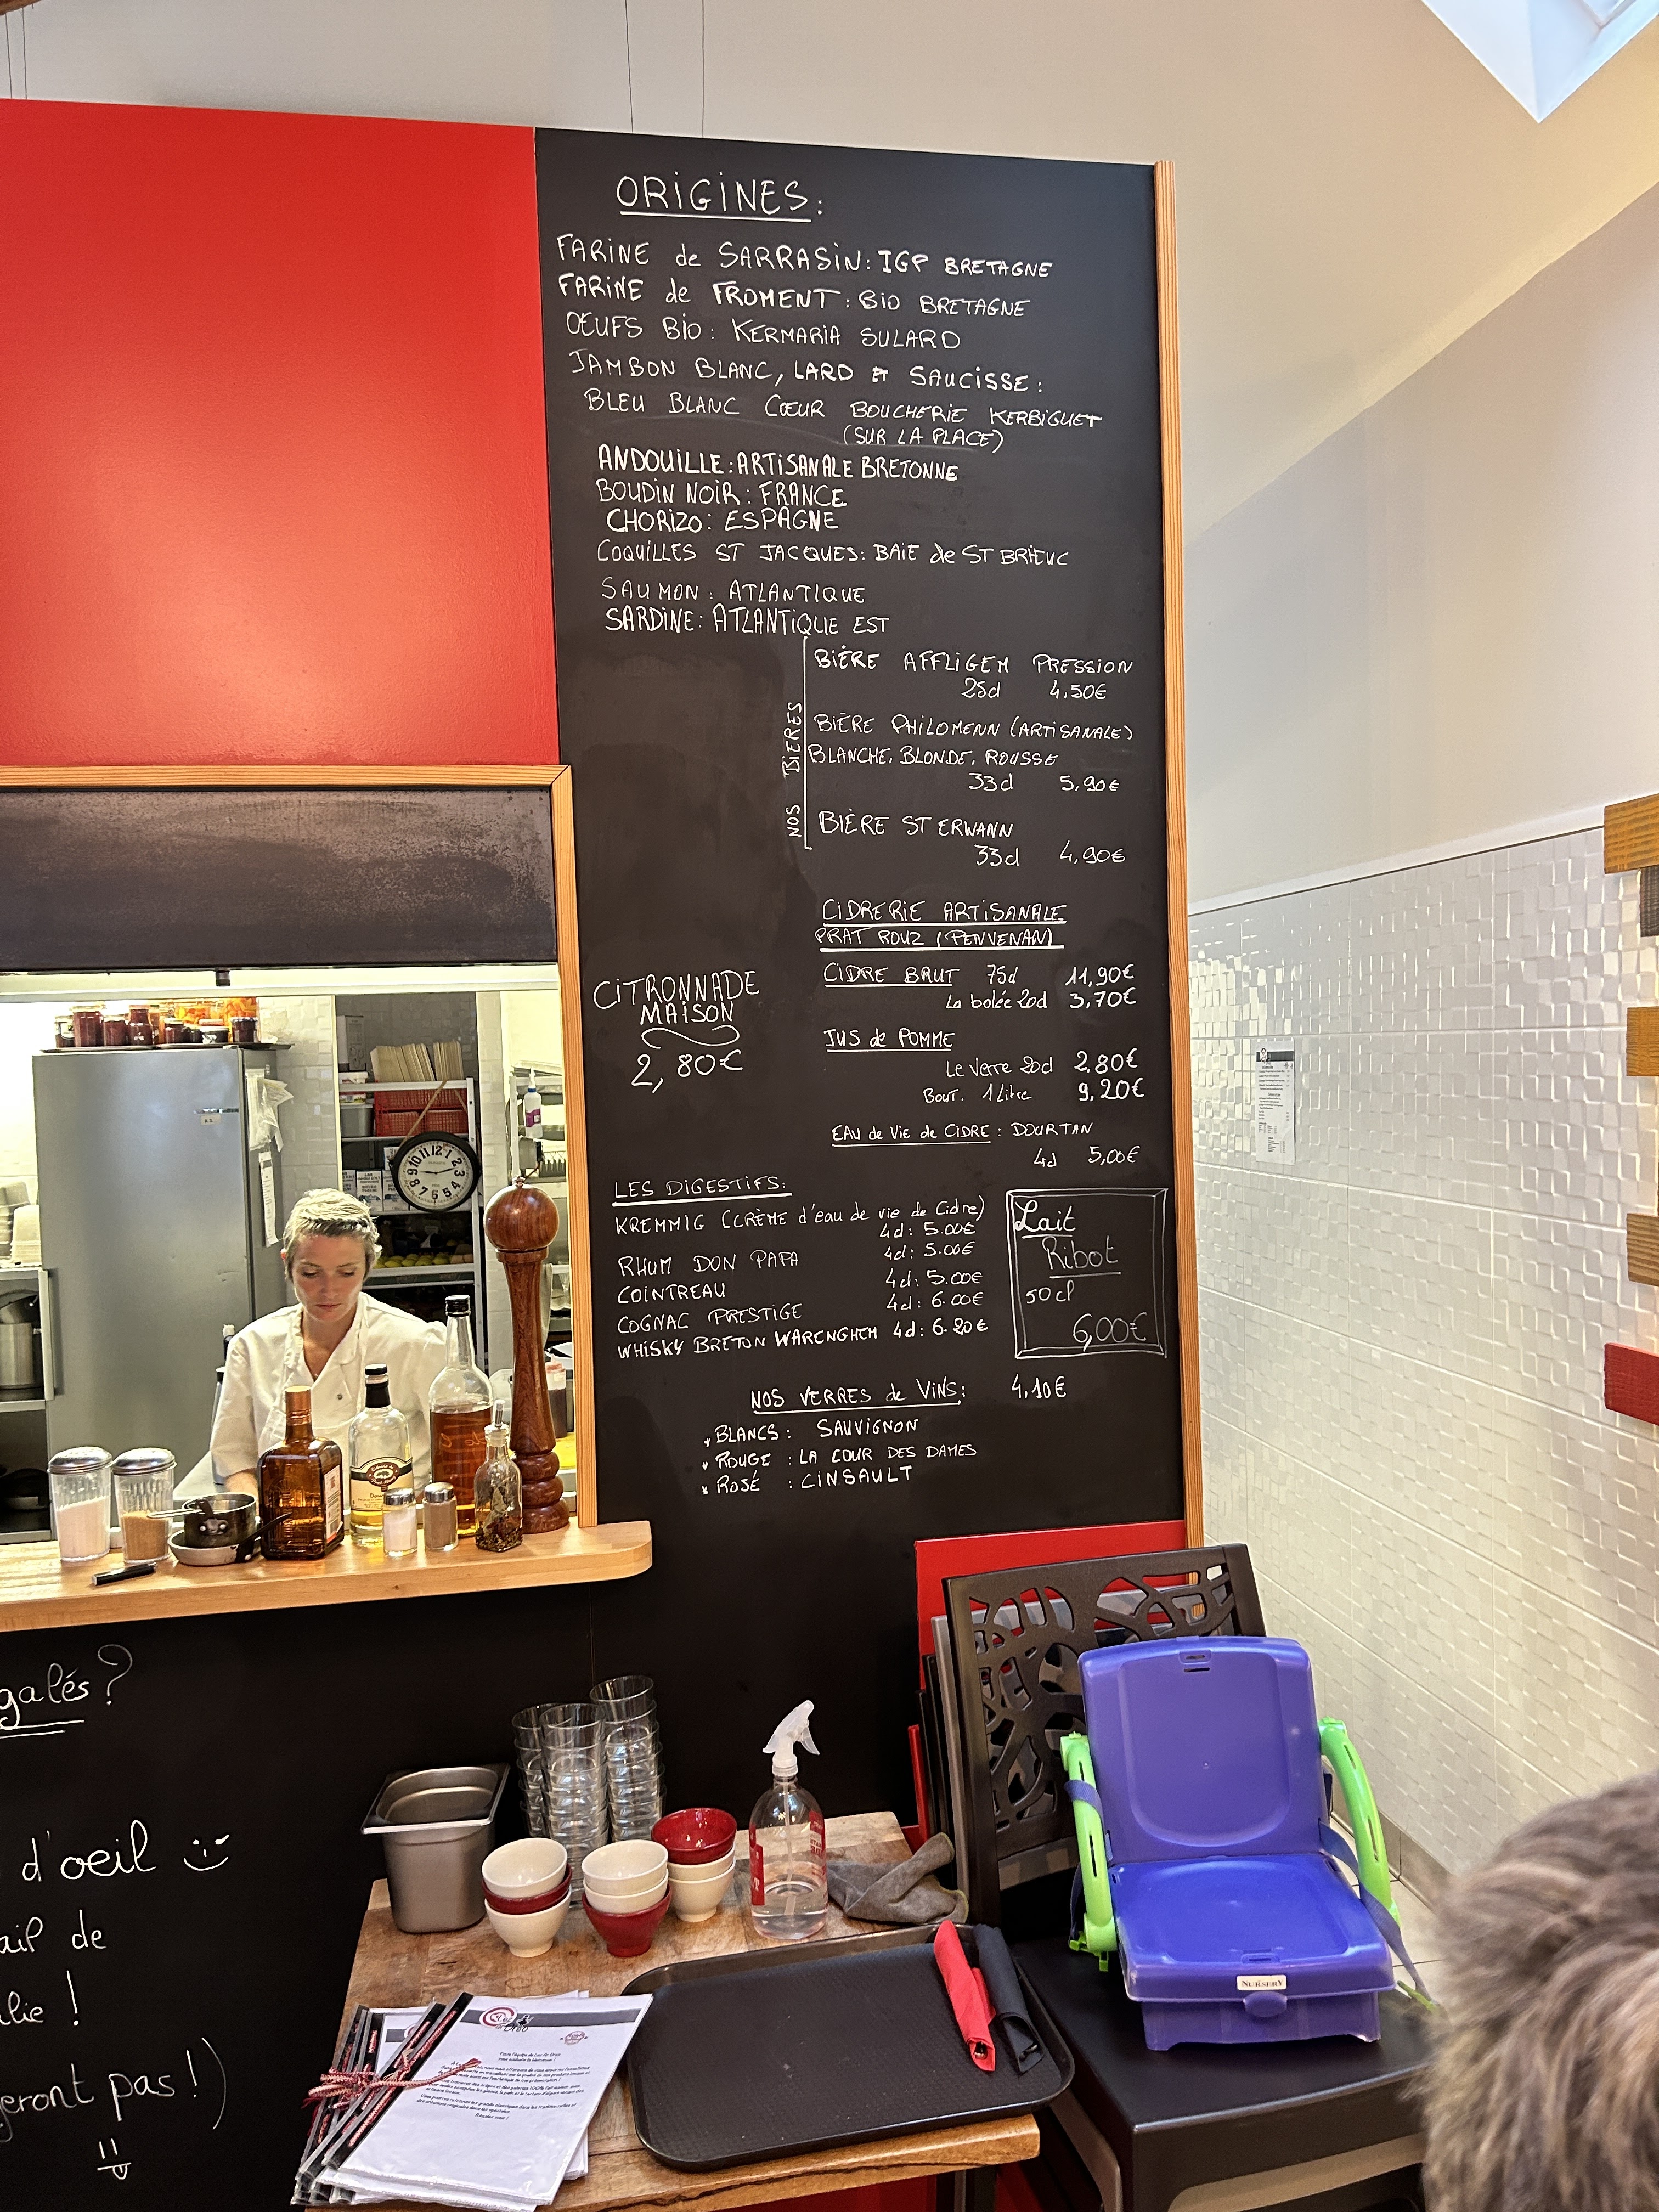 ORIGINES:
FARINE de SARRASIN: IGP BRETAGNE
FARINE de FROMENT: BIO BRETAGNE
OEUFS BIO: KERMARIA SULARD
JAMBON BLANC, LARD ET SAUCISSE:
BLEU BLANC CŒUR BOUCHERIE KERBIGUET
(SUR LA PLACE)
ANDOUILLE: ARTISANALE BRETONNE
BOUDIN NOIR: FRANCE
CHORIZO: ESPAGNE
COQUILLES ST JACQUES: BAIE de ST BRIEUC
SAUMON: ATLANTIQUE
SARDINE: ATLANTIQUE EST
NOS BIERES
BIÈRE AFFLIGEM PRESSION
25cl 4,50€
BIÈRE PHILOMENN (ARTISANALE)
BLANCHE, BLONDE, ROUSSE
33cl 5,90€
BIÈRE ST ERWANN
33cl 4,90€
CIDRERIE ARTISANALE
PRAT ROUZ (PENVENAN)
CIDRE BRUT 75cl 11,90€
La bolée 20cl 3,70€
CITRONNADE
MAISON
2,80€
JUS de POMME
Le verre 20cl 2.80€
BOUT. 1 Litre 9,20€
EAU de VIE de CIDRE: DOURTAN
4cl 5,00€
LES DIGESTIFS:
KREMMIG (CRÈME d'eau de vie de Cidre)
4cl: 5.00€
RHUM DON PAPA 4cl: 5.00€
COINTREAU 4cl: 5.00€
COGNAC PRESTIGE 4cl: 6.00€
WHISKY BRETON WARENGHEM 4cl: 6.20€
Lait
Ribot
50cl
6,00€
NOS VERRES de VINS: 4,10€
* BLANCS: SAUVIGNON
* ROUGE: LA COUR DES DAMES
* ROSÉ: CINSAULT
galés?
d'oeil
de
lie!
eront pas!)
12
1
2
3
4
5
6
7
8
9
10
11
NURSERY